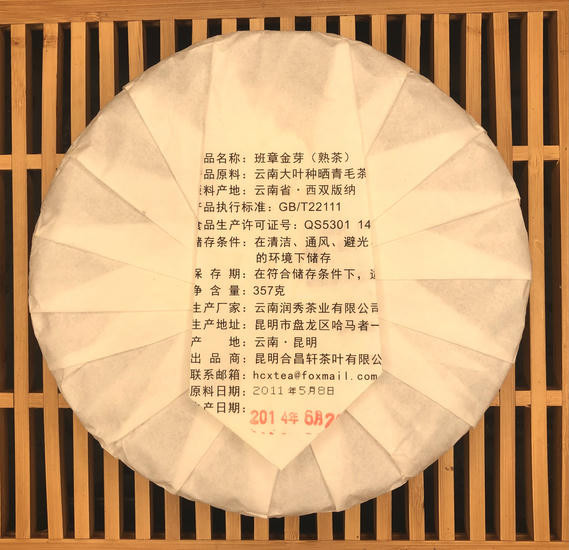 品名称：班章金芽（熟茶）
品原料：云南大叶种晒青毛茶
料产地：云南省·西双版纳
产品执行标准：GB/T22111
食品生产许可证号：QS5301 14
储存条件：在清洁、通风、避光
的环境下储存
保 存 期：在符合储存条件下，
净 含 量：357克
生产厂家：云南润秀茶业有限公司
生产地址：昆明市盘龙区哈马者一
产 地：云南·昆明
出 品 商：昆明合昌轩茶叶有限公
联系邮箱：hcxtea@foxmail.com
原料日期：2011年5月8日
生产日期：2014年6月2